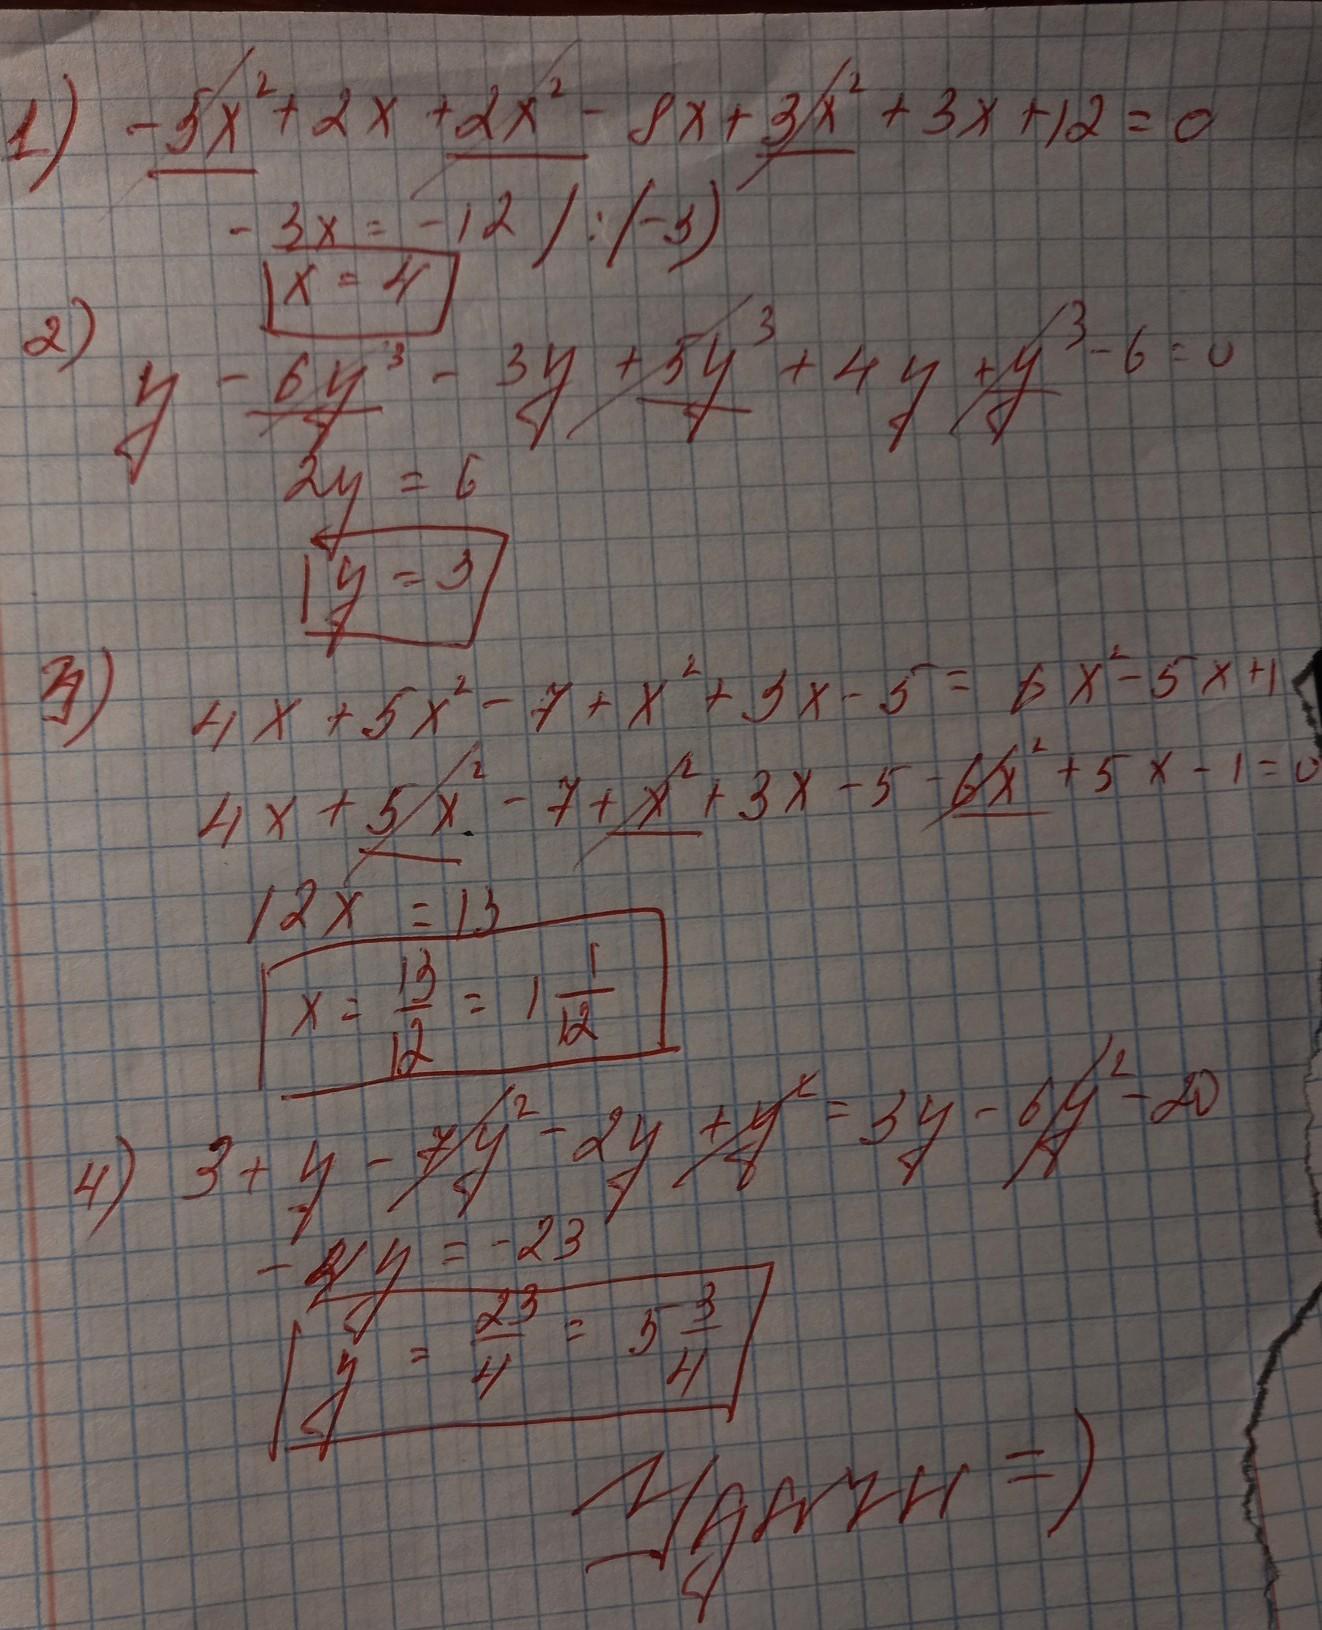 1) -5x² + 2x + 2x² - 8x + 3x² + 3x + 12 = 0
-3x = -12 / : (-3)
x = 4
2) y - 6y³ - 3y + 5y³ + 4y + y³ - 6 = 0
2y = 6
y = 3
3) 4x + 5x² - 7 + x² + 3x - 5 = 6x² - 5x + 1
4x + 5x² - 7 + x² + 3x - 5 - 6x² + 5x - 1 = 0
12x = 13
x = 13/12 = 1 1/12
4) 3 + y - 7y² - 2y + y² = 3y - 6y² - 20
-4y = -23
y = 23/4 = 5 3/4
Удачи =)